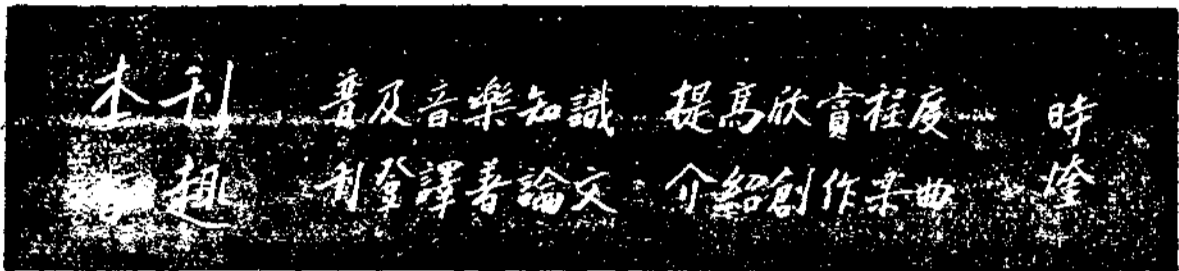 本刊 普及音樂知識 提高欣賞程度 時
趣 刊登譯著論文 介紹創作楽曲